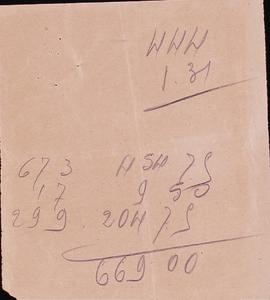 444
1.31
673 454 75
17 9 50
299. 204 75
669 00